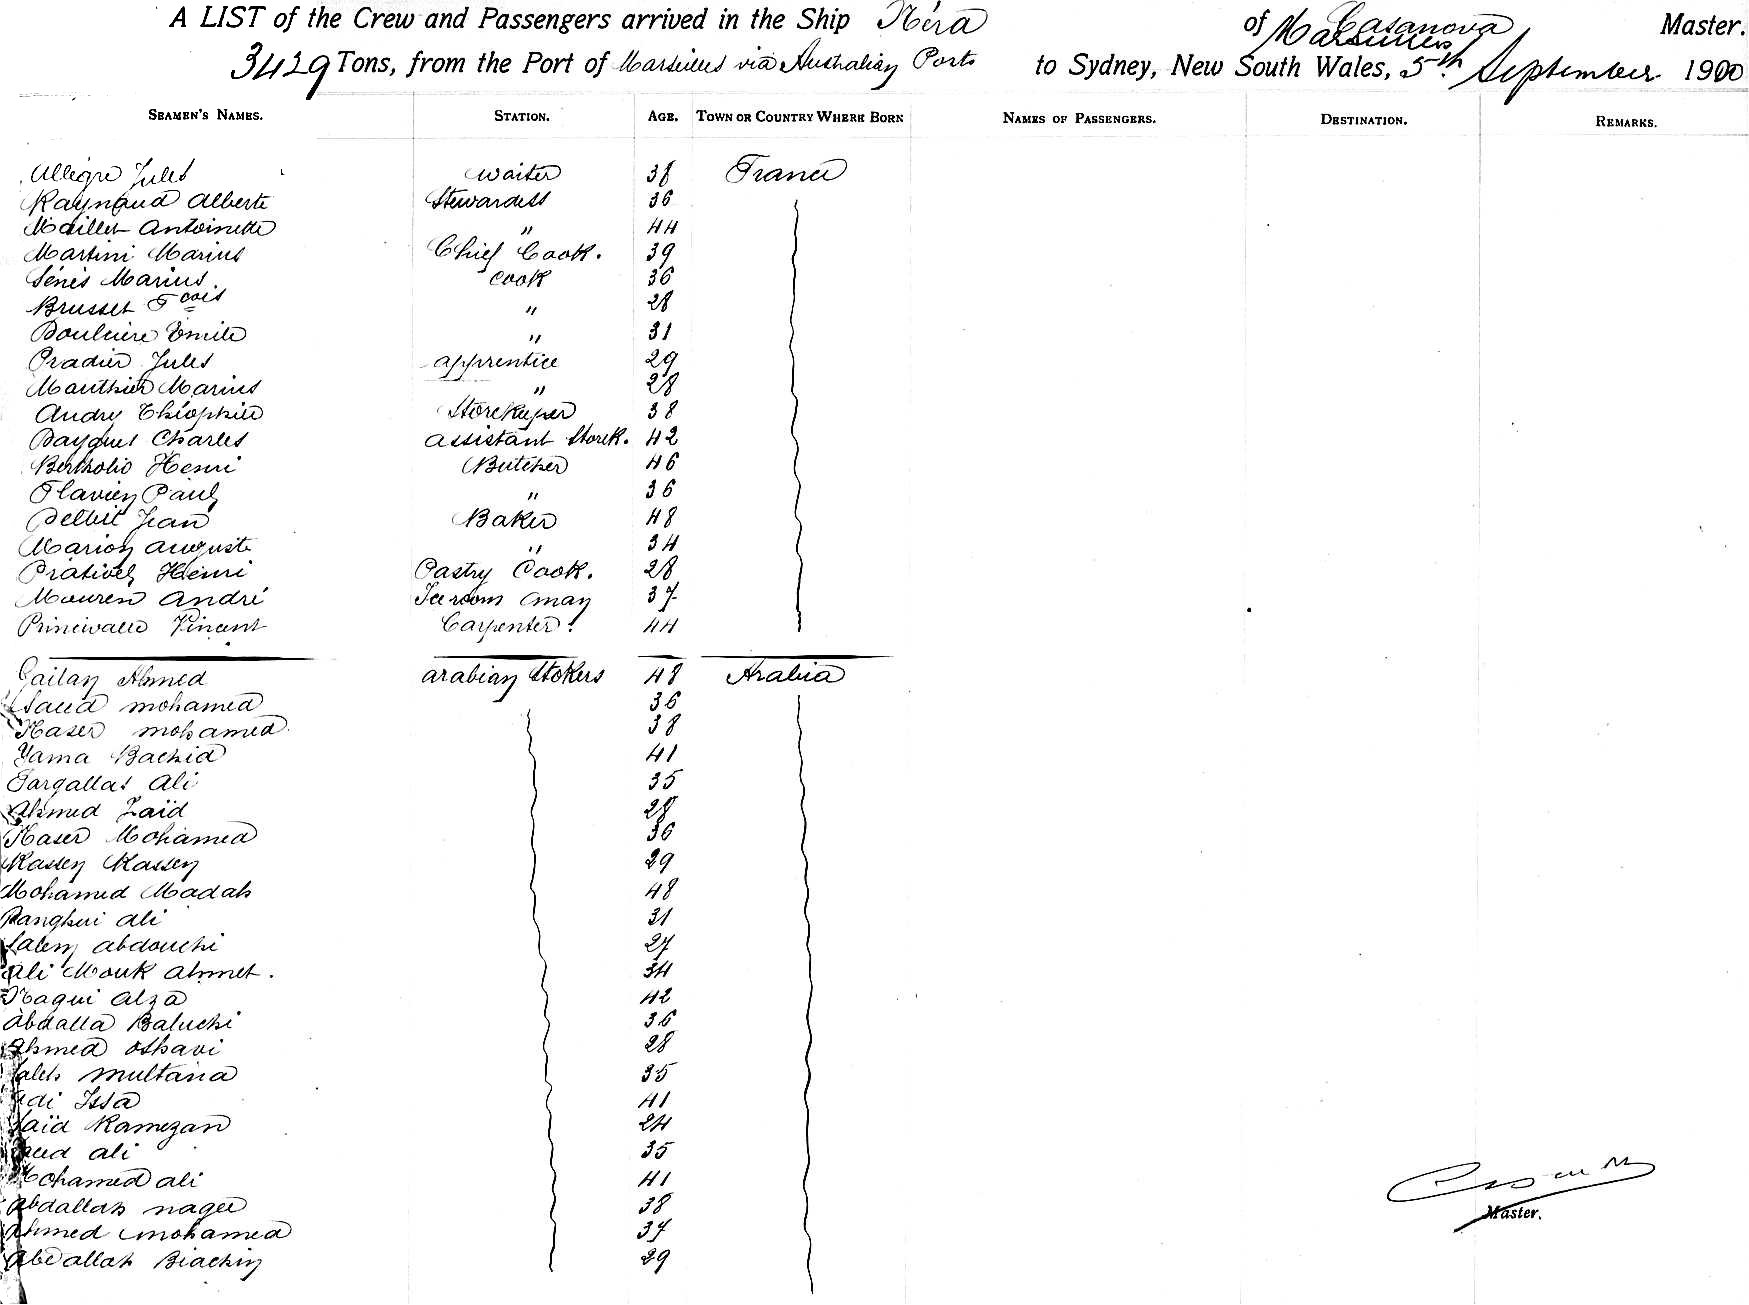 A LIST of the Crew and Passengers arrived in the Ship Néra of Marseilles Casanova Master.
3429 Tons, from the Port of Marseilles via Australian Ports to Sydney, New South Wales, 5th September 1900
SEAMEN'S NAMES. STATION. AGE. TOWN OR COUNTRY WHERE BORN NAMES OF PASSENGERS. DESTINATION. REMARKS.
Allègre Jules waiter 38 France
Raynaud Alberte Stewardess 36
Maillet Antoinette " 44
Martini Marius Chief Cook. 39
Sénès Marius cook 36
Brusset Fcois " 28
Emile " 31
Pradier Jules apprentice 29
Mauthier Marius " 28
Audry Théophile Storekeeper 38
Charles assistant Storek. 42
Henri Butcher 46
Flavien Paul " 36
Jean Baker 48
Marion Auguste " 34
Henri Pastry Cook. 28
Mouren André man 37
Vincent Carpenter. 44
Gailan Ahmed arabian Stokers 48 Arabia
Saed mohamed 36
Naser mohamed 38
Yama Bachid 41
Ali 35
Ahmed Zaïd 28
Naser Mohamed 36
Kassen Kassen 29
Mohamed Madah 48
Ali 31
Salem abdouchi 27
Ali Mouk ahmet. 34
Nagui alza 42
Abdalla Baluchi 36
Ahmed oshavi 28
Saleh multana 35
Issa 41
Saïd Ramezan 24
ali 35
Mohamed ali 41
Abdallah nagee 38
Ahmed mohamed 37
Abdallah Biachin 29
Master.